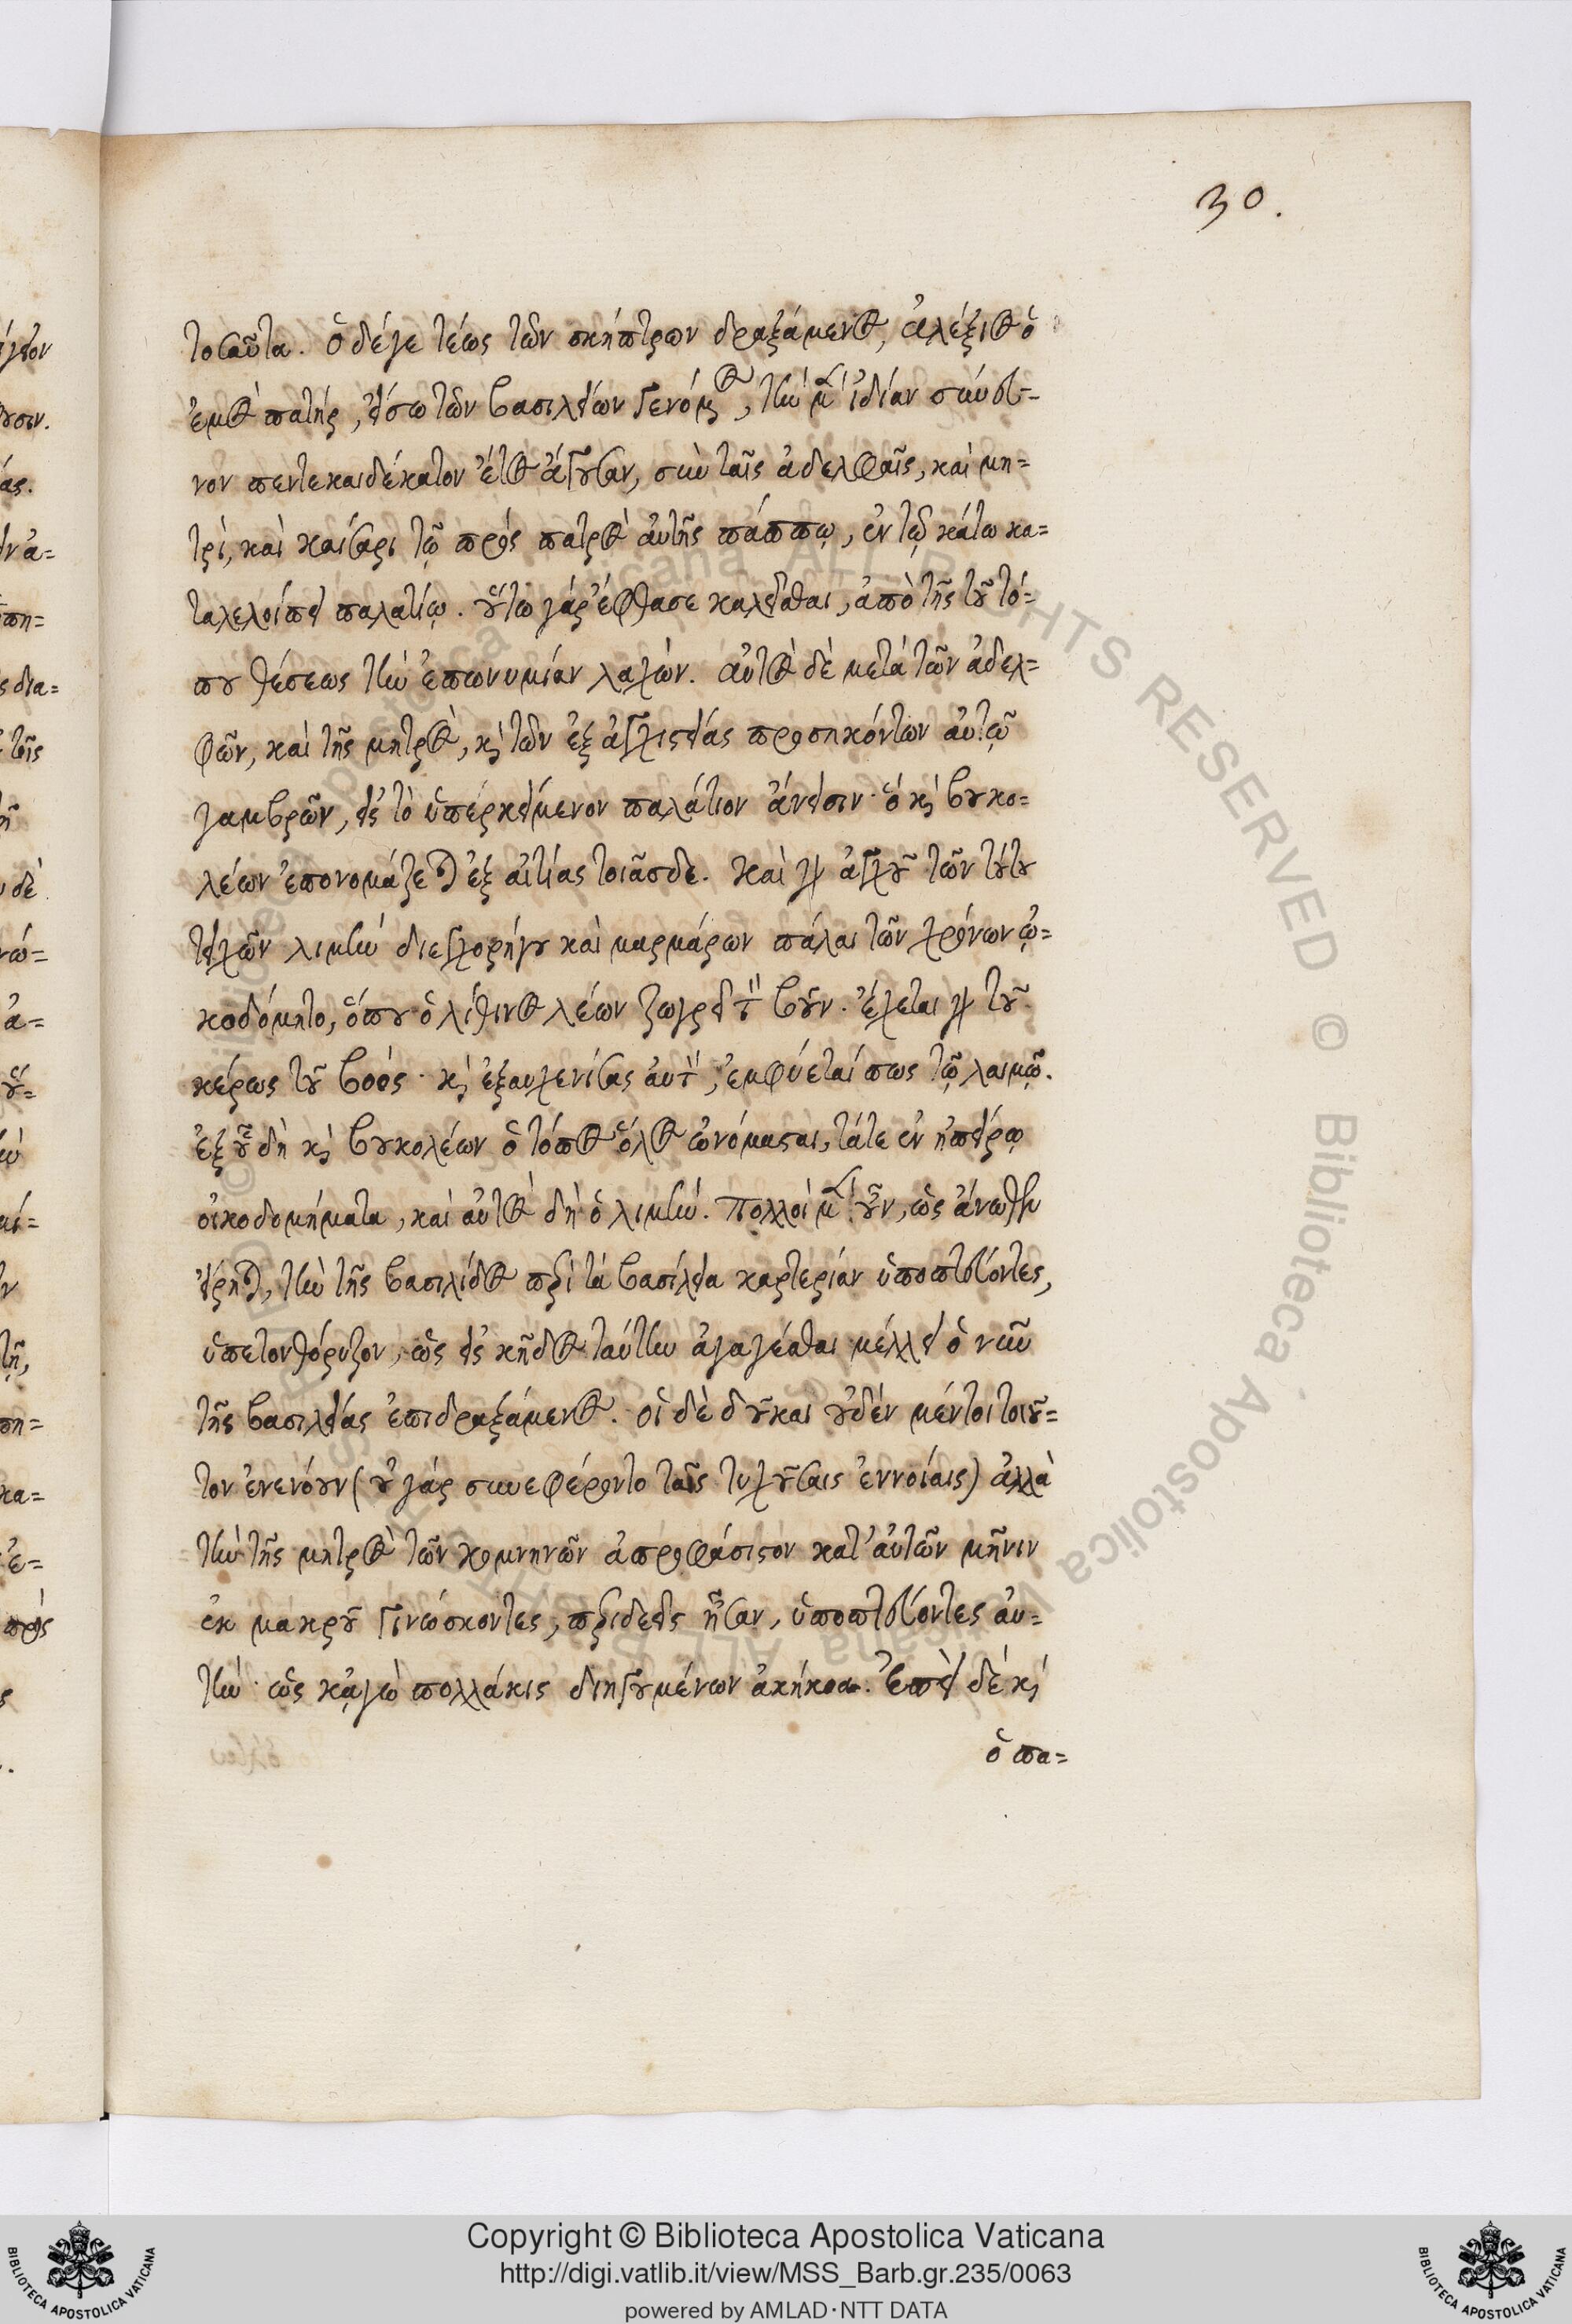 30.
τοσαῦτα. ὁ δέ γε τέως τῶν σκήπτρων δραξάμενος, ἀλέξιος ὁ
ἐμὸς πατήρ, εἴσω τῶν βασιλείων γενόμενος, τὴν μὲν ἰδίαν σύνευ-
νον πεντεκαιδέκατον ἔτος ἄγουσαν, σὺν ταῖς ἀδελφαῖς, καὶ μη=
τρί, καὶ καίσαρι τῷ πρὸς πατρὸς αὐτῆς πάππῳ, ἐν τῷ κάτω κα=
ταλελοίπει παλατίῳ. οὕτω γάρ ἔφθασε καλεῖσθαι, ἀπὸ τῆς τοῦ τό=
που θέσεως τὴν ἐπωνυμίαν λαχών. αὐτὸς δὲ μετὰ τῶν ἀδελ=
φῶν, καὶ τῆς μητρὸς, καὶ τῶν ἐξ ἀγχιστείας προσηκόντων αὐτῷ
γαμβρῶν, εἰς τὸ ὑπερκείμενον παλάτιον ἄνεισιν· ὅ καὶ βουκο=
λέων ἐπονομάζεται ἐξ αἰτίας τοιᾶσδε. καὶ γὰρ ἀγχοῦ τῶν τούτου
τειχῶν λιμὴν διεγχορήγου καὶ μαρμάρων πάλαι τῶν χρόνων ᾠ=
κοδόμητο, ὅπου ὁ λίθινος λέων ζωγρεῖ τὸν βοῦν. ἔχεται γὰρ τοῦ
κέρως τοῦ βοός· καὶ ἐξαυχενίσας αὐτὸν, ἐμφύεταί πως τῷ λαιμῷ.
ἐξ οὗ δὴ καὶ βουκολέων ὁ τόπος ὅλος ὠνόμασται, τά τε ἐν ἠπείρῳ
οἰκοδομήματα, καὶ αὐτὸς δὴ ὁ λιμήν. Πολλοὶ μὲν οὖν, ὡς ἄνωθεν
εἴρηται, τὴν τῆς βασιλίδος περὶ τὰ βασίλεια καρτερίαν ὑποπτεύοντες,
ὑπετονθόρυζον, ὡς εἰς κῆδος ταύτην ἀγαγέσθαι μέλλει ὁ νῦν
τῆς βασιλείας ἐπιδραξάμενος. οἱ δὲ δοῦκαι οὐδέν μέντοι τοιοῦ=
τον ἐνενόουν (οὐ γάρ συνεφέροντο ταῖς τυχούσαις ἐννοίαις) ἀλλὰ
τὴν τῆς μητρὸς τῶν κομνηνῶν ἀπροφάσιστον κατ' αὐτῶν μῆνιν
ἐκ μακροῦ γινώσκοντες, περιδεεῖς ἦσαν, ὑποπτεύοντες αὐ=
τὴν· ὡς κἀγὼ πολλάκις διηγουμένων ἀκήκοα. Ἐπεὶ δέ καὶ
ὁ πα=